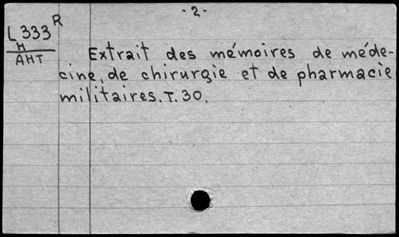 -2-
L333 R
H
AHT
Extrait des mémoires de méde-
cine, de chirurgie et de pharmacie
militaires. T. 30.